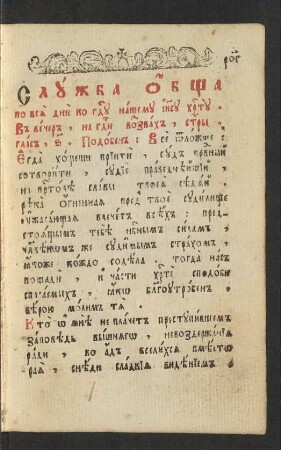 роє
Слꙋжба ѻбща
во всѧ дни ко гдⷭ҇ꙋ нашемꙋ іис҃ꙋ хрⷭ҇тꙋ.
Въ вечеръ, на гди воззвахъ, стры,
гласъ, ѕ҃. Подобенъ: Все ѿложше:
Егда хощеши прїити, сꙋдъ првный
сотворити, сꙋдїе праведнѣйшїй,
на прⷭ҇толѣ славы твоеѧ сѣдѧй.
рѣка огненнаѧ предъ твое сꙋдилище
ꙋжасающаѧ влечетъ всѣхъ: пред
стоѧщымъ тебѣ нбⷭ҇нымъ силамъ,
члвѣкомъ же сꙋдимымъ страхомъ,
ꙗкоже кождо содѣла. тогда насъ
пощади, и части хрⷭ҇те сподоби
спасаемыхъ, ꙗкѡ благоꙋтробенъ,
вѣрою молимъ тѧ.
Кто ѡ мнѣ не плачетъ престꙋпившемъ
заповѣдь вышнѧгѡ, невоздержанїѧ
ради, во адъ вселихсѧ вмѣстѡ
раѧ, снѣди сладкїѧ видѣнїемъ